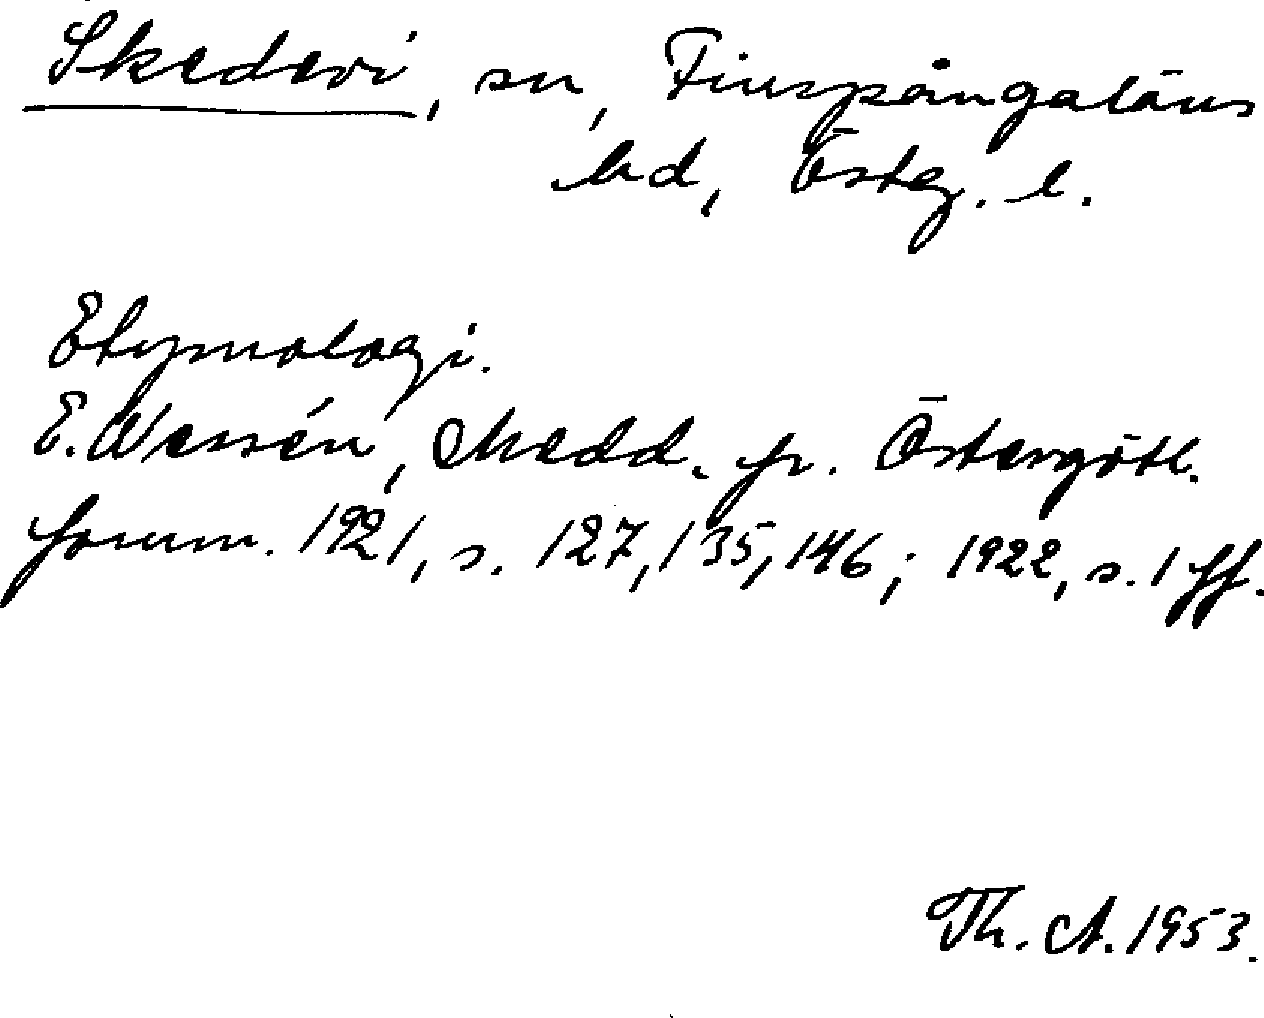 Skedevi, sn, Finspångaläns
hd, Österg. l.
Etymologi.
E. Wessén, Medd. fr. Östergötl.
fornm. 1921, s. 127, 135, 146; 1922, s. 1 ff.
Th. A. 1953.